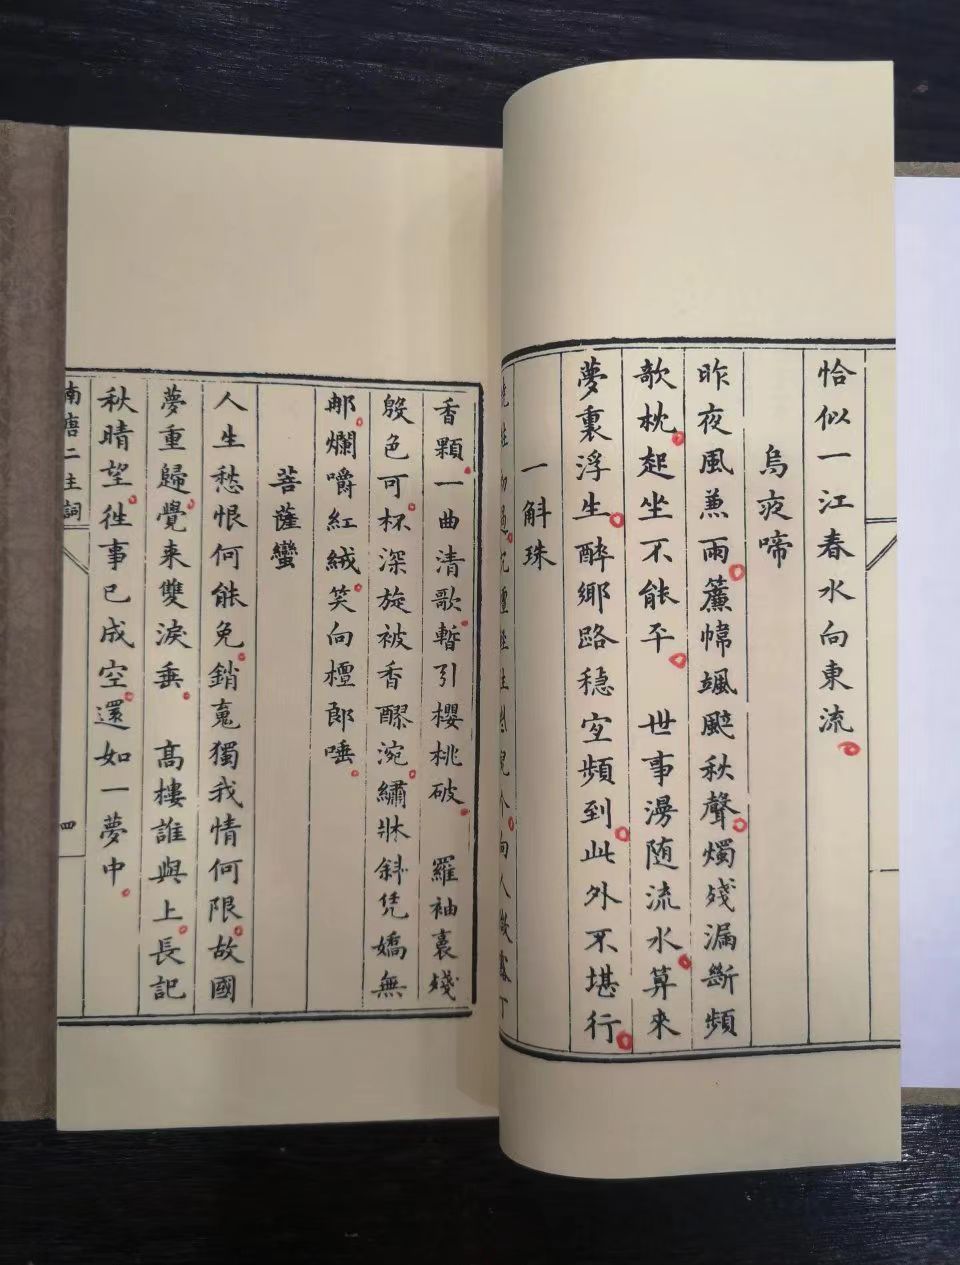 恰似一江春水向東流
烏夜啼
昨夜風兼雨簾幃颯颸秋聲燭殘漏斷頻
欹枕起坐不能平　世事漫随流水算来
夢裏浮生醉鄉路穩宜頻到此外不堪行
一斛珠
曉粧初過沉檀輕注些兒个向人微露丁
香顆一曲清歌暫引櫻桃破　羅袖裛殘
殷色可杯深旋被香醪涴繡牀斜凭嬌無
郍爛嚼紅絨笑向檀郎唾
菩薩蠻
人生愁恨何能免銷䰟獨我情何限故國
夢重歸覺来雙淚垂　高樓誰與上長記
秋晴望徃事已成空還如一夢中
南唐二主詞
四